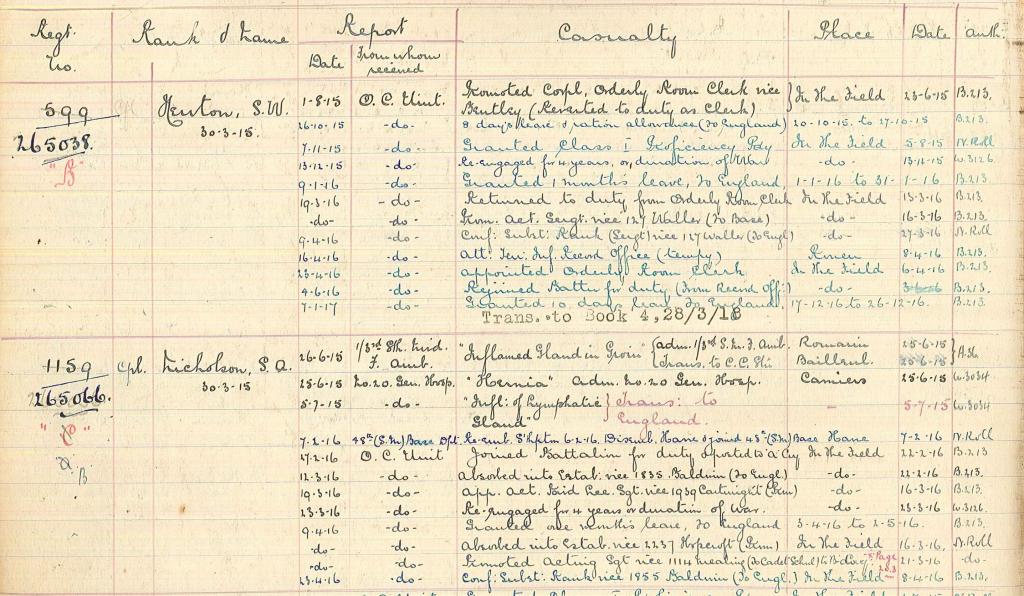 Regt. No. Rank & Name Report Casualty Place Date Auth:
Date From whom received
599 1-8-15 O.C. Unit. Promoted Corpl, Orderly Room Clerk vice In the Field 23-6-15 B.213.
30-3-15. Bentley (Reverted to duty as Clerk)
265038. 26-10-15 -do- 8 days leave & ration allowance (To England) 20-10-15. to 27-10-15 B.213.
"B" 7-11-15 -do- Granted Class I Proficiency Pay In the Field 5-8-15 N.Roll
13-12-15 -do- Re-engaged for 4 years, or, duration of War -do- 13-11-15 W.3126.
9-1-16 -do- Granted 1 month's leave, To England, 1-1-16 to 31-1-16 B.213.
19-3-16 -do- Returned to duty from Orderly Room Clerk In the Field 13-3-16 B.213.
-do- -do- Prom. Act. Sergt. vice 127 Waller (To Base) -do- 16-3-16 B.213.
9-4-16 -do- Conf: Subst: Rank (Sergt) vice 127 Waller (To Engl) -do- 27-3-16 N.Roll
16-4-16 -do- Att: Terr: Inf. Record Office (tempy) Rouen 8-4-16 B.213.
23-4-16 -do- appointed Orderly Room Clerk In the Field 6-4-16 B.213.
4-6-16 -do- Rejoined Battn for duty (From Record Off:) -do- 3-6-16 B.213.
7-1-17 -do- Granted 10 days leave To England. 17-12-16 to 26-12-16. B.213.
Trans. to Book 4, 28/3/18
1159 Cpl. Nicholson, S.A. 26-6-15 1/3rd Nth. Mid. F. Amb. "Inflamed Gland in Groin" Adm. 1/3rd N.M.F. Amb. 25-6-15
30-3-15. Trans. to C.C. Stn Bailleul. 25-6-15 A.36
265066. 25-6-15 No.20. Gen. Hosp. "Hoernia" Adm. No.20 Gen. Hosp. Camiers 25-6-15 W.3034
5-7-15 -do- "Infl: of Lymphatic Gland" Trans: to England. - 5-7-15 W.3034
7-2-16 48th (S.M) Base Dpt. Re-emb. S'hptn 6-2-16. Disemb. Havre & joined 48th (S.M) Base Havre 7-2-16 N.Roll
27-2-16 O.C. Unit Joined Battalion for duty & posted to A Coy In the Field 22-2-16 B.213.
B 12-3-16 -do- Absorbed into Estab. vice 1835 Baldwin (To Engl) -do- 22-2-16 B.213.
19-3-16 -do- App. Act. Paid Lce. Sgt. vice 1939 Cartwright (Prm) -do- 16-3-16 B.213.
23-3-16 -do- Re-engaged for 4 years or duration of War. -do- 23-3-16 W.3126.
9-4-16 -do- Granted one month's leave, To England 3-4-16 to 2-5-16. B.213.
-do- -do- Absorbed into Estab. vice 2237 Hopcroft (Prm) In the Field 16-3-16. N.Roll
-do- -do- Promoted Acting Sgt vice 1114 -do- 21-3-16 -do-
23-4-16 -do- Conf: Subst: Rank vice 1855 Baldwin (To Engl.) In the Field 8-4-16 B.213.